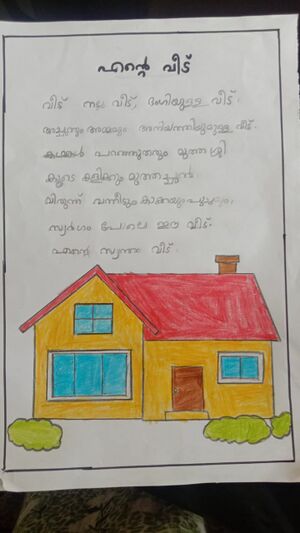 എന്റെ വീട്
വീട് നല്ല വീട്, ഭംഗിയുള്ള വീട്.
അച്ഛനും അമ്മയും അനിയത്തിയുമുള്ള വീട്.
കഥകൾ പറഞ്ഞുതരും മുത്തശ്ശി
കൂടെ കളിക്കും മുത്തച്ഛൻ.
വിരുന്ന് വന്നീടും കാക്കയും
സ്വർഗം പോലെ ഈ വീട്.
എന്റെ സ്വന്തം വീട്.